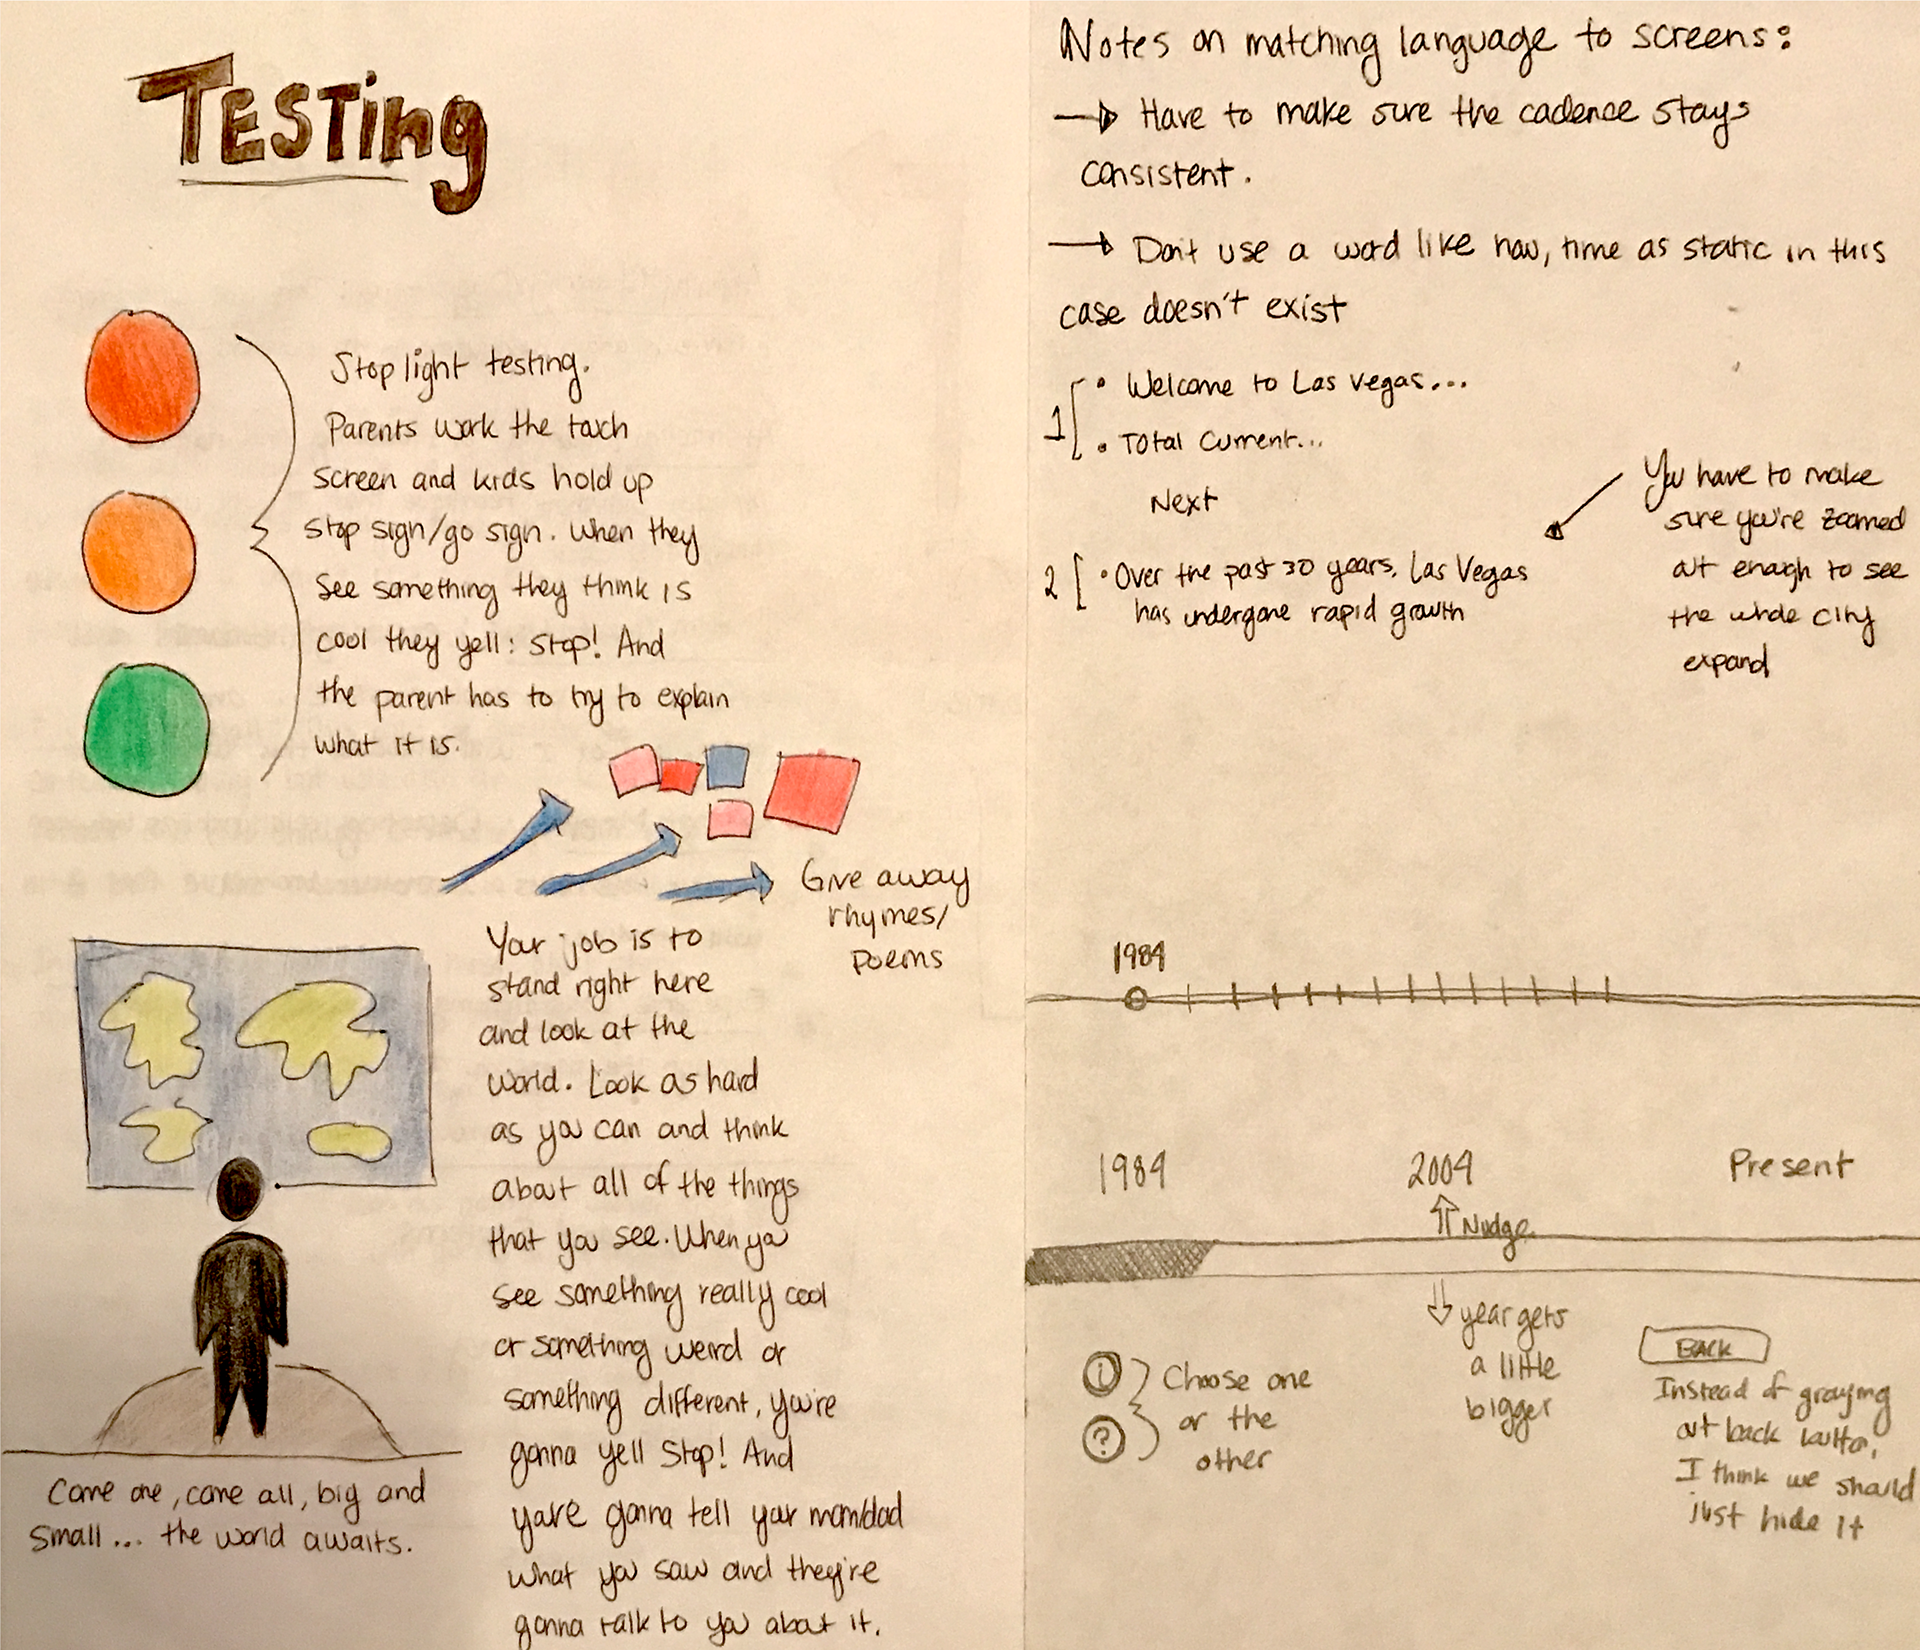 TESTing
Stop light testing.
Parents work the touch
screen and kids hold up
stop sign/go sign. When they
see something they think is
cool they yell: Stop! And
the parent has to try to explain
what it is.
Give away
rhymes/
poems
Your job is to
stand right here
and look at the
world. Look as hard
as you can and think
about all of the things
that you see. When you
see something really cool
or something weird or
something different, you're
gonna yell Stop! And
you're gonna tell your mom/dad
what you saw and they're
gonna talk to you about it.
Come one, come all, big and
small... the world awaits.
Notes on matching language to screens:
→ Have to make sure the cadence stays
consistent.
→ Don't use a word like now, time as static in this
case doesn't exist
1 • Welcome to Las Vegas...
• Total Current...
Next
2 • Over the past 30 years, Las Vegas
has undergone rapid growth
You have to make
sure you're zoomed
out enough to see
the whole city
expand
1984
1984 2004 Present
Nudge
year gets
a little
bigger
i
?
Choose one
or the
other
BACK
Instead of graying
out back button,
I think we should
just hide it